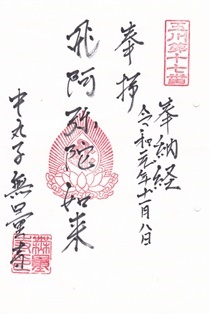 玉川第十七番
奉拝
奉納経
令和元年十一月八日
飛阿弥陀如来
中丸子 無量寺